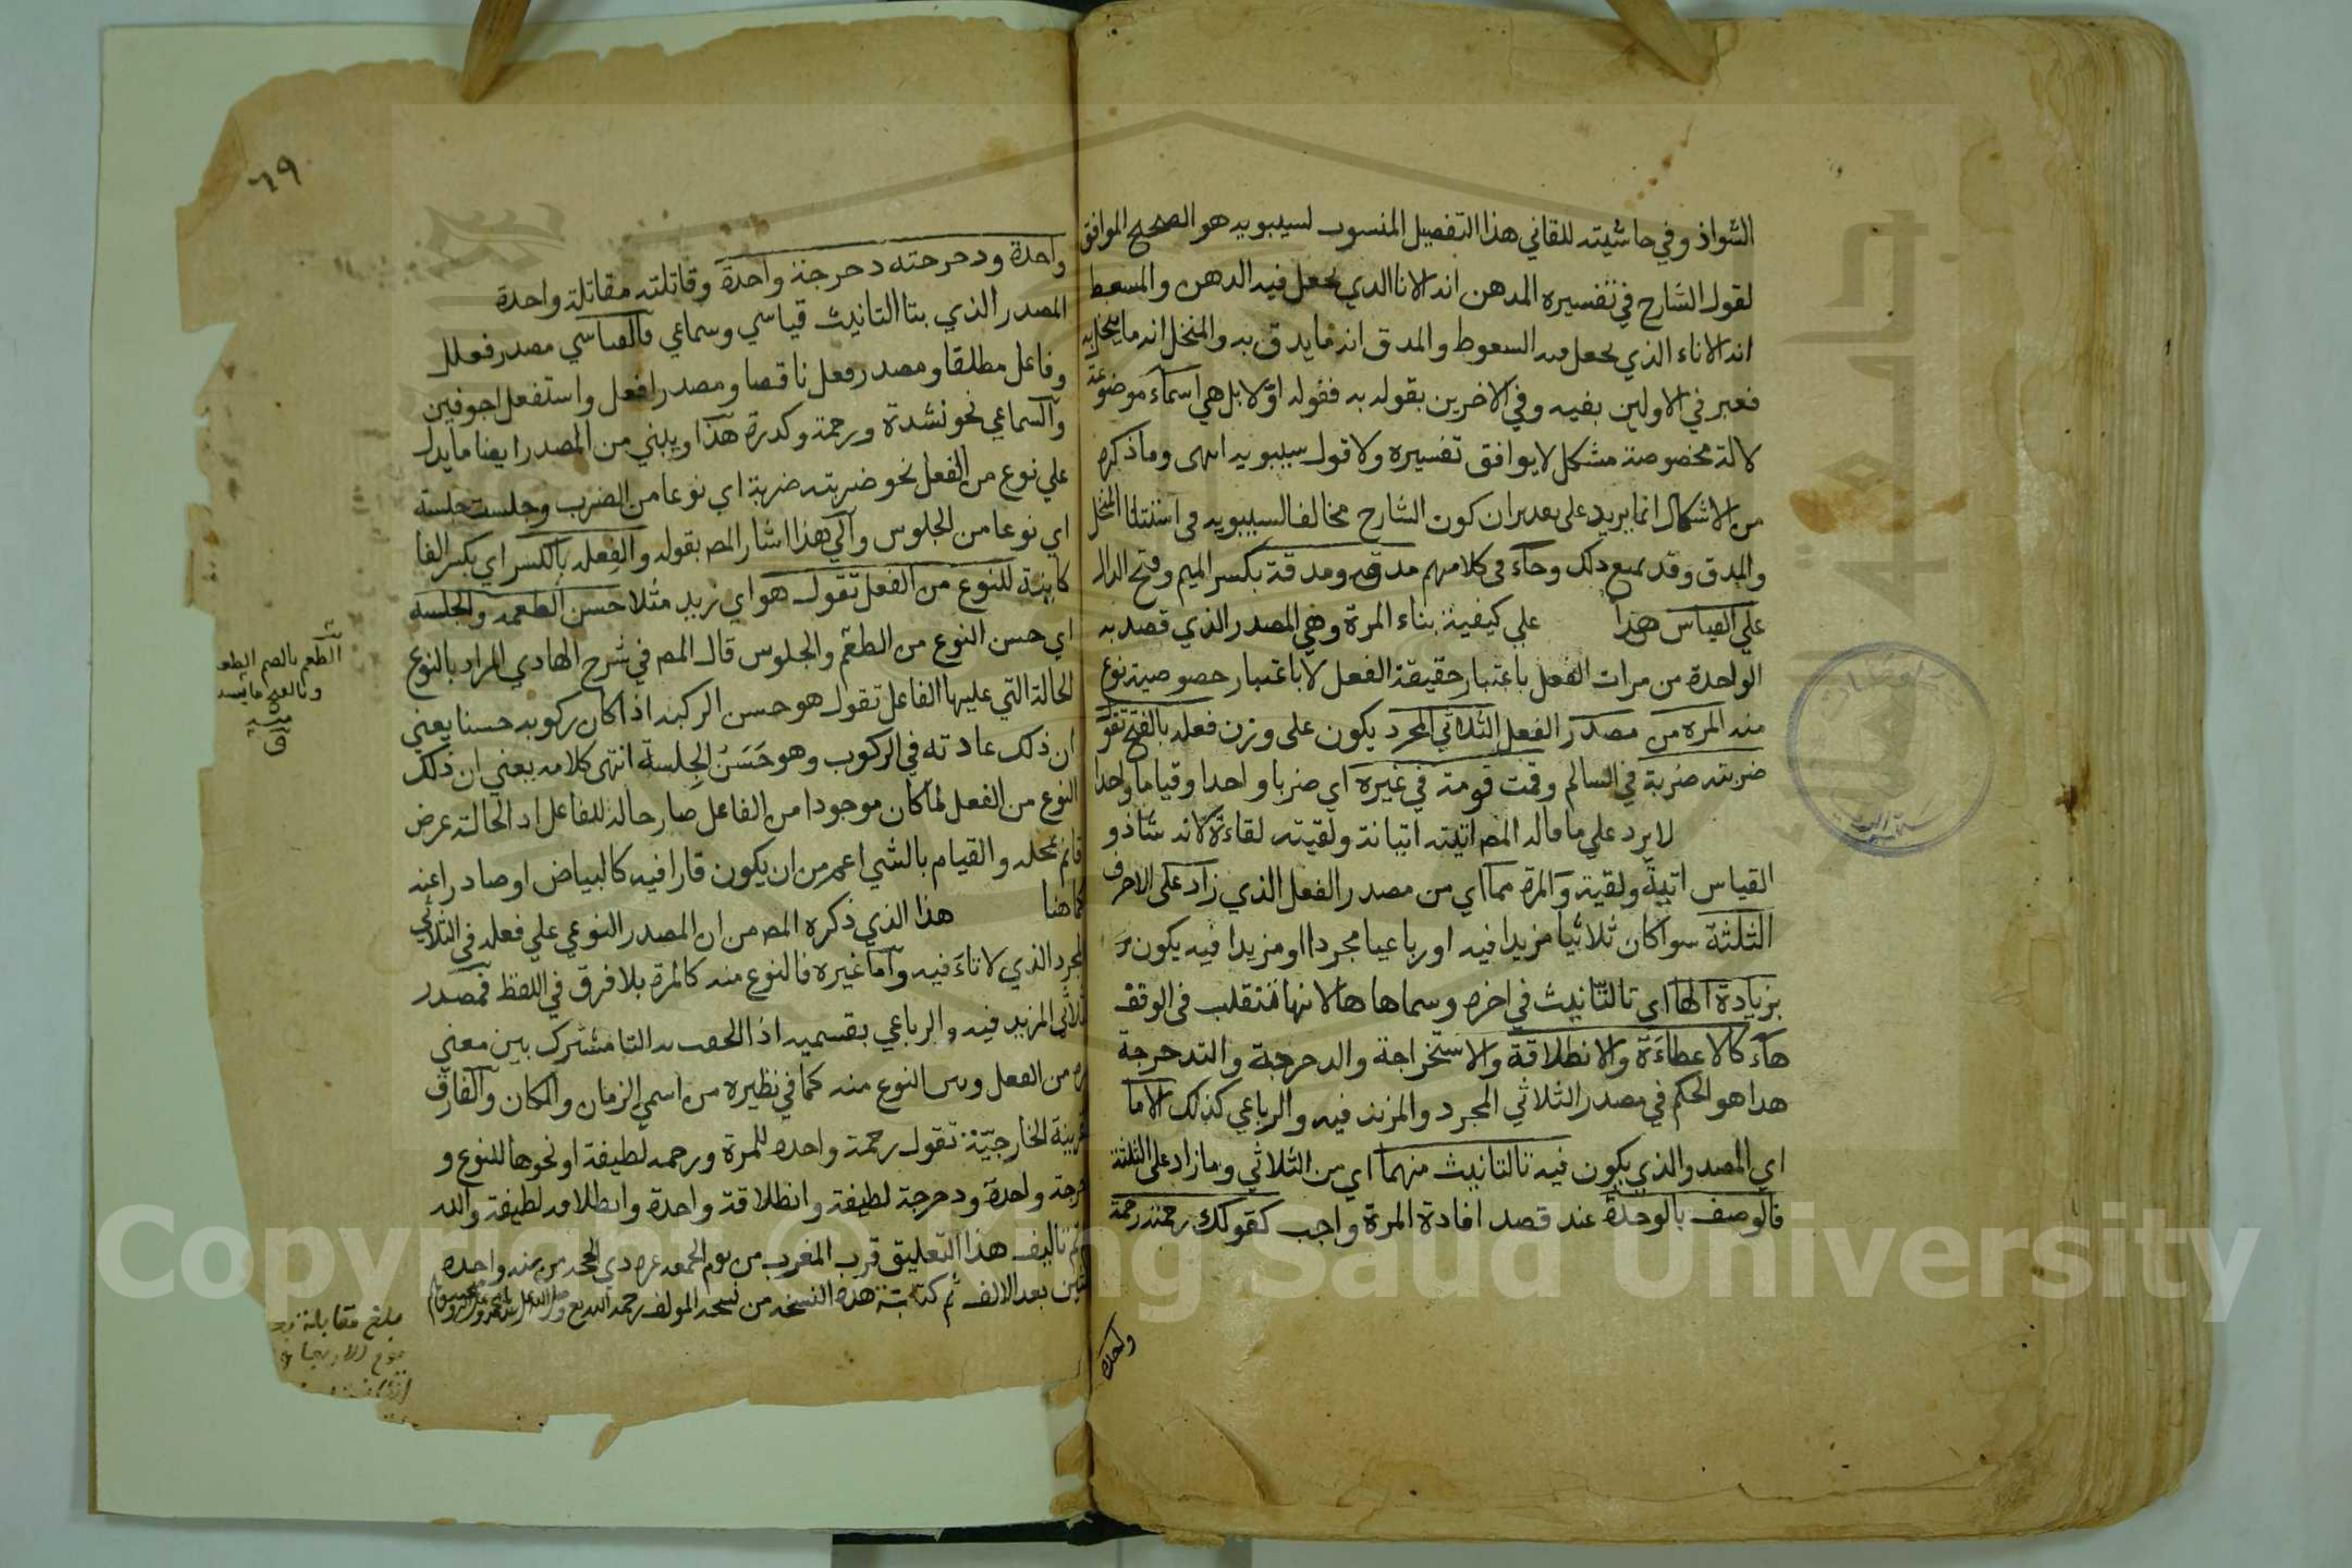 الشواذ وفي حاشيته للقاني هذا التفصيل المنسوب لسيبويه هو الصحيح الموافق
لقول الشارح في تفسيره المدهن انه الانا الذي يجعل فيه الدهن والمسعط
انه الاناء الذي يجعل فيه السعوط والمدق انه ما يدق به والمنخل انه ما ينخل به
فعبر في الاولين بفيه وفي الاخرين بقوله به فقوله اولا بل هي اسماء موضوعة
لالة مخصوصة مشكل لا يوافق تفسيره ولا قول سيبويه انتهى وما ذكره
من الاشكال انما يريد على تقدير ان كون الشارح مخالفا لسيبويه في استثنا المنخل
والمدق وقد يمنع ذلك وجاء في كلامهم مدقه ومدقة بكسر الميم وفتح الدال
علي القياس هذا علي كيفية بناء المرة وهي المصدر الذي قصد به
الواحدة من مرات الفعل باعتبار حقيقة الفعل لا باعتبار خصوصية نوع
منه المره من مصدر الفعل الثلاثي المجرد يكون على وزن فعله بالفتح تقول
ضربته ضربة في السالم وقمت قومة في غيره اي ضربا واحدا وقياما واحدا
لا يرد علي ما قاله المص اتيته اتيانة ولقيته لقاءة لانه شاذ و
القياس اتية ولقية والمرة مما اي من مصدر الفعل الذي زاد على الاحرف
الثلثة سوا كان ثلاثيا مزيدا فيه او رباعيا مجردا او مزيدا فيه يكون
بزيادة الها اي تا التانيث في اخره وسماها ها لانها تنقلب في الوقف
هاء كالاعطاءة والانطلاقة والاستخراجة والدحرجة والتدحرجة
هذا هو الحكم في مصدر الثلاثي المجرد والمزيد فيه والرباعي كذلك الا ما
اي المصدر الذي يكون فيه تا التانيث منهما اي من الثلاثي وما زاد على الثلثة
فالوصف بالوحدة عند قصد افادة المرة واجب كقولك رحمته رحمة
واحدة
٦٩
واحدة ودحرجته دحرجة واحدة وقاتلته مقاتلة واحدة
المصدر الذي بتا التانيث قياسي وسماعي فالقياسي مصدر فعلل
وفاعل مطلقا ومصدر فعل ناقصا ومصدر افعل واستفعل اجوفين
والسماعي نحو نشدة ورحمة وكدرة هذا ويبني من المصدر ايضا ما يدل
علي نوع من الفعل نحو ضربته ضربة اي نوعا من الضرب وجلست جلسة
اي نوعا من الجلوس والي هذا اشار المص بقوله والفعله بالكسر اي بكسر الفا
كاينة للنوع من الفعل تقول هو اي زيد مثلا حسن الطعمه والجلسه
اي حسن النوع من الطعم والجلوس قال المص في شرح الهادي المراد بالنوع
الحالة التي عليها الفاعل تقول هو حسن الركبة اذا كان ركوبه حسنا يعني
ان ذلك عادته في الركوب وهو حسن الجلسة انتهى كلامه يعني ان ذلك
النوع من الفعل لما كان موجودا من الفاعل صار حالة للفاعل اذ الحالة عرض
قائم بمحله والقيام بالشي اعم من ان يكون قارا فيه كالبياض او صادرا عنه
كما هنا هذا الذي ذكره المص من ان المصدر النوعي علي فعله في الثلاثي
المجرد الذي لا تاء فيه واما غيره فالنوع منه كالمرة بلا فرق في اللفظ فمصدر
الثلاثي المزيد فيه والرباعي بقسميه اذا الحقت به التا مشترك بين معني
المرة من الفعل وبين النوع منه كما في نظيره من اسمي الزمان والمكان والفارق
القرينة الخارجية تقول رحمة واحدة للمرة ورحمة لطيفة او نحوها للنوع و
دحرجة واحدة ودحرجة لطيفة وانطلاقة واحدة وانطلاقة لطيفة والله
تم تاليف هذا التعليق قرب المغرب من يوم الجمعة غرة ذي الحجة من سنة واحدة
بعد الالف تم كتابة هذه النسخة من نسخة المولف رحمه
الطعم بالضم
وبالفتح ما
بلغ مقابلة